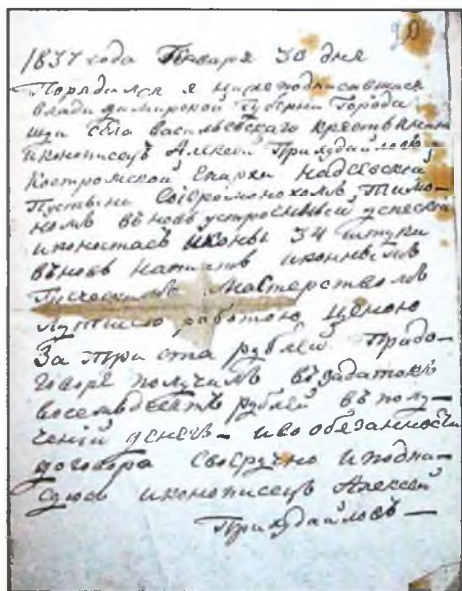 20
1837 года Января 30 дня
Порядился я нижеподписавшася
владимирской Губернии Города
шуи села васильевскаго крестьянинъ
иконописецъ Алексей Прихудайловъ
Костромской Епархи Надеевской
Пустыни Съiеромонохомъ Тимо-
номъ въновь устроенный успеской
иконостасъ иконы 34 штуки
въновь написать иконнымъ
Греческимъ мастерствомъ
лутшею работою ценою
За три ста рублей Придо-
говоре получилъ въ задатокъ
восемьдесятъ рублей въ полу-
чений денегъ — иво обязанность
договора своеручно иподпи-
суюсь иконописецъ Алексей
Прихудайловъ —